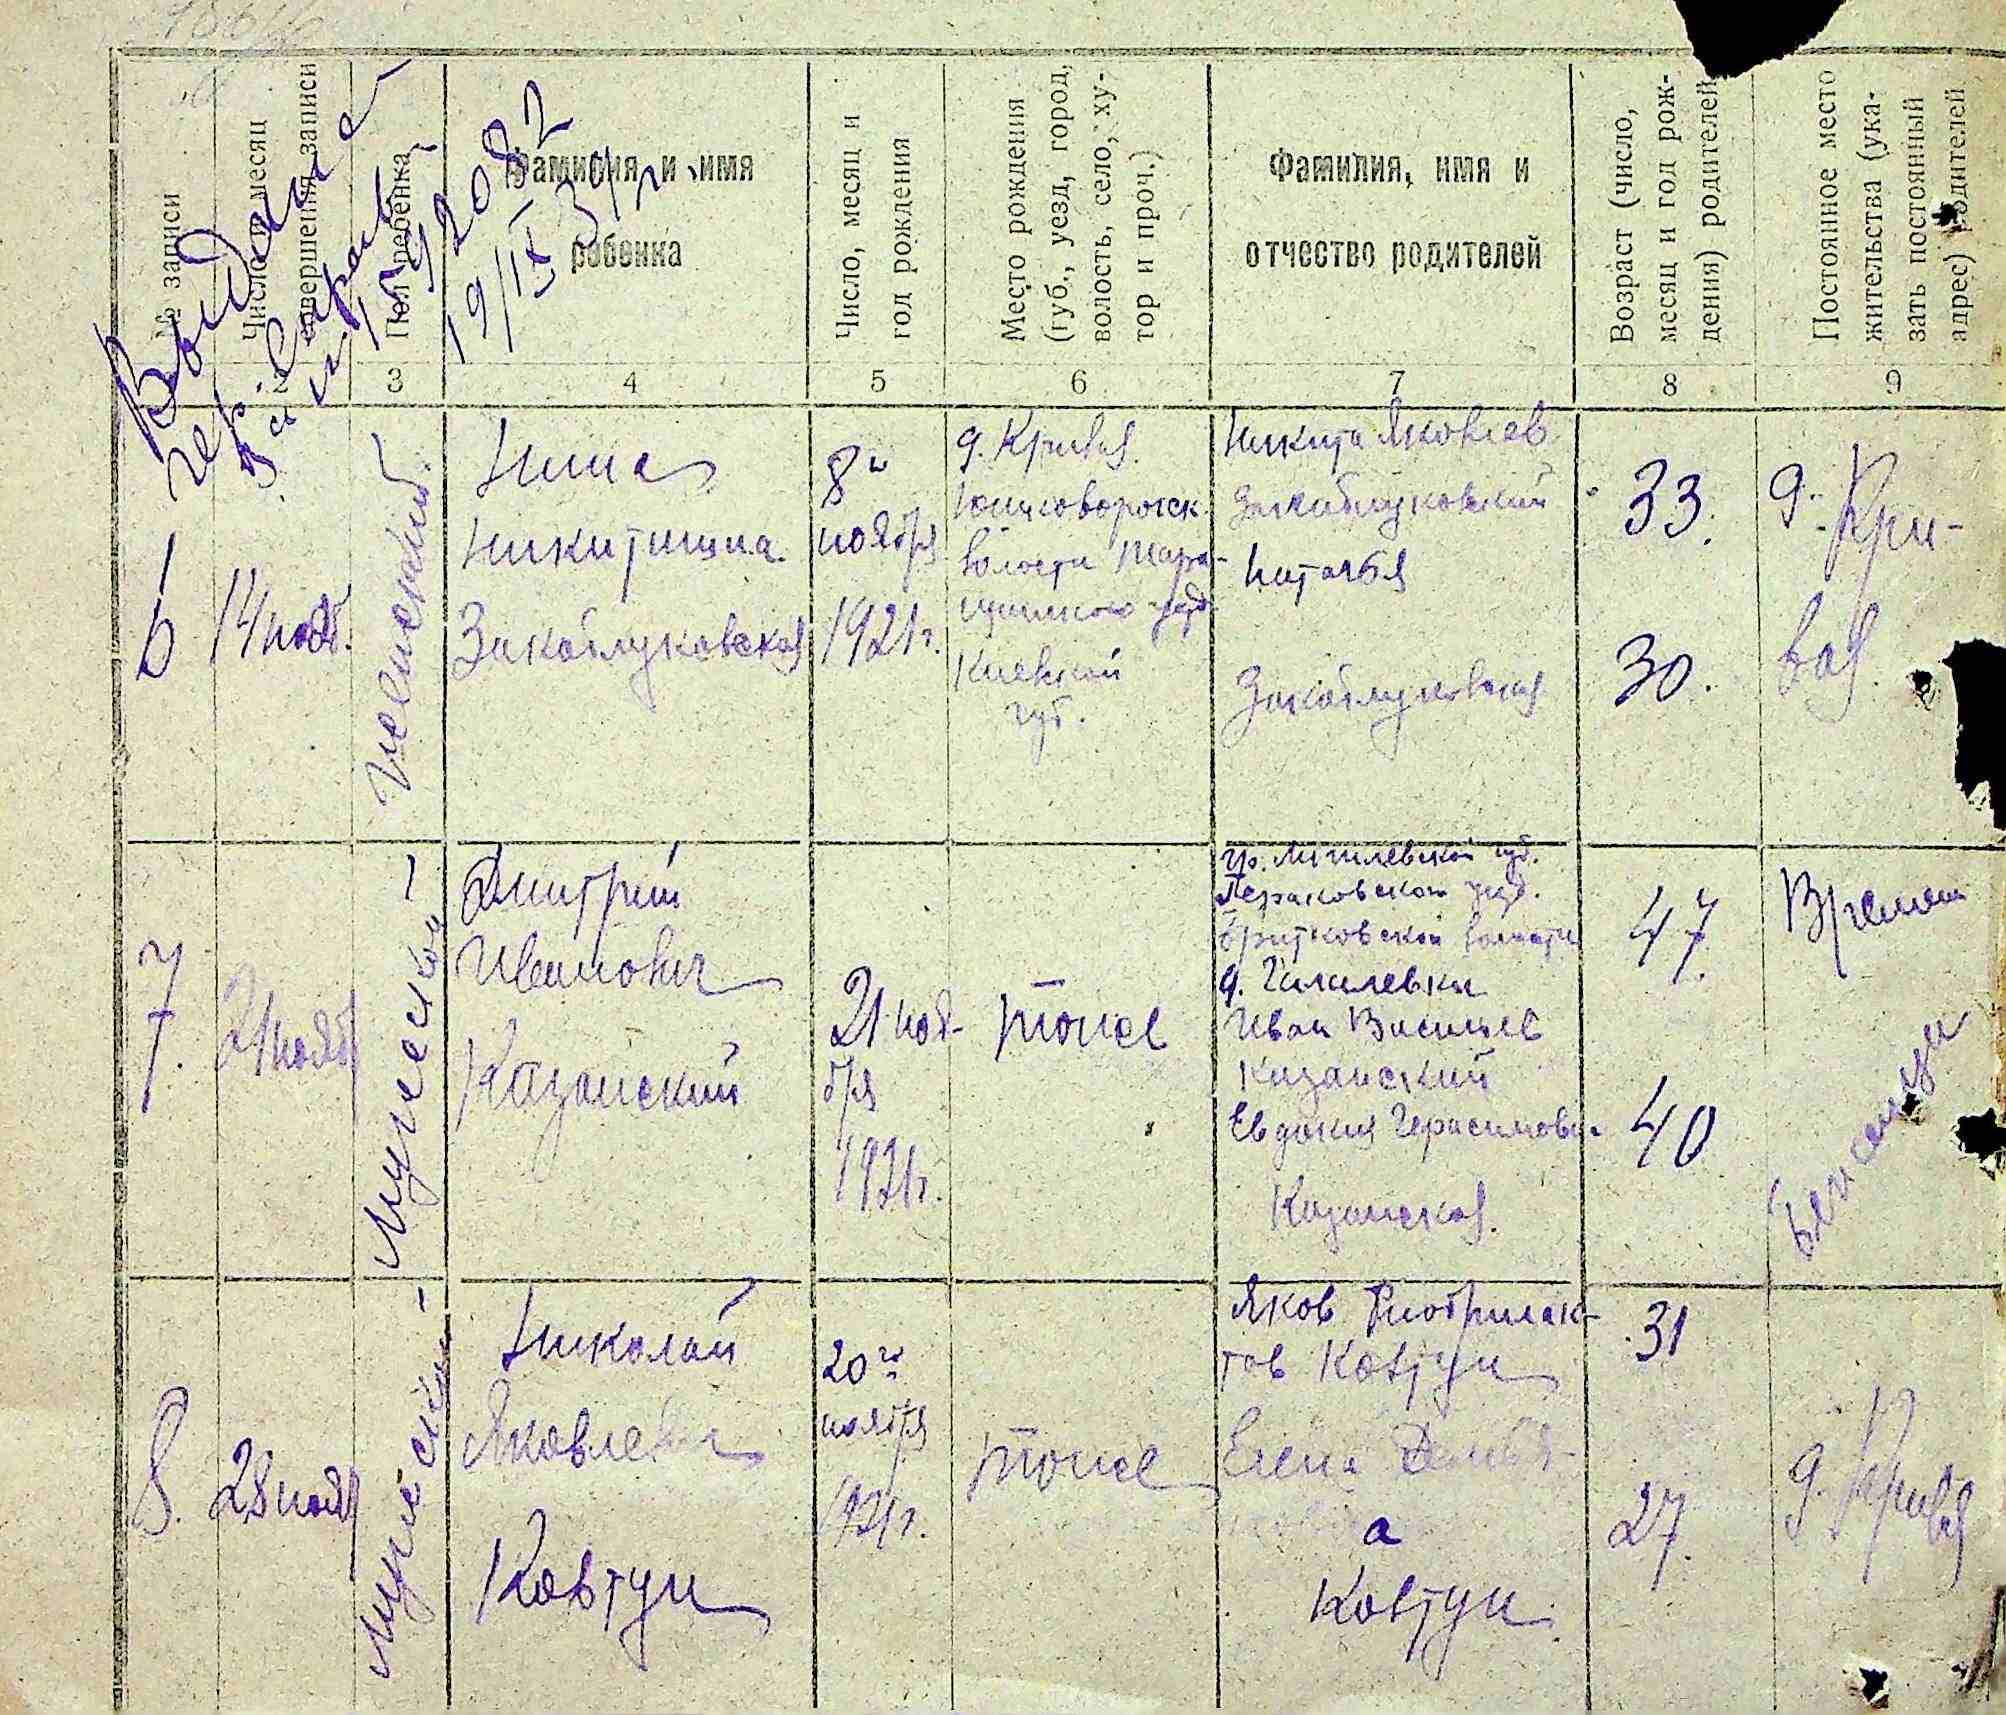 № записи
Число и месяц
совершения записи
Пол ребенка
Фамилия и имя
ребенка
Число, месяц и
год рождения
Место рождения
(губ., уезд, город,
волость, село, ху-
тор и проч.)
Фамилия, имя и
отчество родителей
Возраст (число,
месяц и год рож-
дения) родителей
Постоянное место
жительства (ука-
зать постоянный
адрес) родителей
Выдана
справ.
1592082
19/IX 34 г.
2
3
4
5
6
7
8
9
6
14 нояб.
Женский
Нина
Никитишна
Закаблуковская
8го
ноября
1921 г.
д. Кривая
волости Тара-
щинского уезд.
Киевской
губ.
Никита Яковлев
Закаблуковский
Наталья
Закаблуковская
33.
30.
д. Кри-
вая
7.
21 нояб
Мужеской
Дмитрий
Иванович
Казанский
21 ноя-
бря
1921 г.
тоже
гр. Могилевской губ.
волости
Иван Васильев
Казанский
Евдокия Герасимова
Казанская.
47.
40
Времен
Беженцы
8.
28 нояб
Мужеской
Николай
Яковлевич
Ковтун
20го
ноября
1921 г.
тоже
Яков
тов Ковтун
Елена Демья-
а
Ковтун.
31
27.
д. Кривая